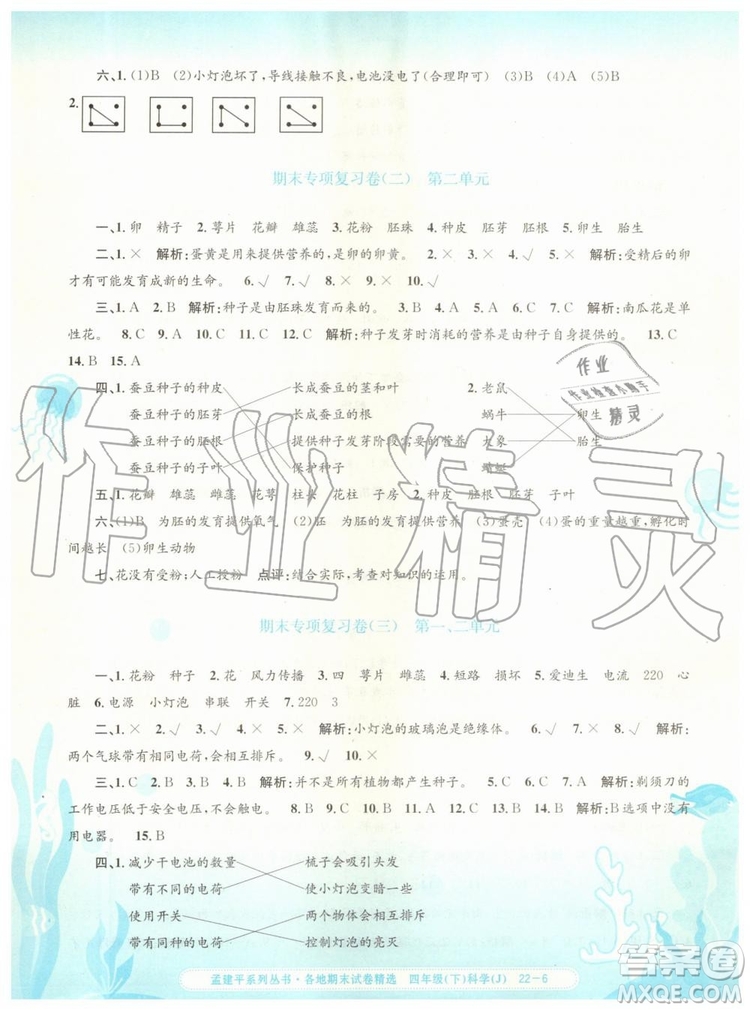 六、1. (1)B (2)小灯泡坏了,导线接触不良,电池没电了(合理即可) (3)B (4)A (5)B
2.
期末专项复习卷(二) 第二单元
一、1. 卵 精子 2. 萼片 花瓣 雄蕊 3. 花粉 胚珠 4. 种皮 胚芽 胚根 5. 卵生 胎生
二、1. × 解析:蛋黄是用来提供营养的,是卵的卵黄。 2. × 3. × 4. × 解析:受精后的卵
才有可能发育成新的生命。 6. √ 7. √ 8. √ 9. × 10. √
三、1. A 2. B 解析:种子是由胚珠发育而来的。 3. B 4. C 5. B 6. A 7. B 解析:南瓜花是单
性花。 8. C 9. A 10. C 11. C 12. C 解析:种子发芽时消耗的营养是由种子自身提供的。 13. C
14. B 15. A
四、1. 蚕豆种子的种皮 长成蚕豆的茎和叶 2. 老鼠
蚕豆种子的胚芽 长成蚕豆的根 蜗牛 卵生
蚕豆种子的胚根 提供种子发芽阶段需要的营养 大象 胎生
蚕豆种子的子叶 保护种子 蜻蜓
五、1. 花瓣 雄蕊 雌蕊 花萼 柱头 花柱 子房 2. 种皮 胚根 胚芽 子叶
六、(1)B 为胚的发育提供氧气 (2)胚 为胚的发育提供营养 (3)蛋壳 (4)蛋的重量越重,孵化时
间越长 (5)卵生动物
七、花没有受粉;人工授粉 点评:结合实际,考查对知识的运用。
期末专项复习卷(三) 第一、二单元
一、1. 花粉 种子 2. 花 风力传播 3. 四 萼片 雌蕊 4. 短路 损坏 5. 爱迪生 电流 220 心
脏 6. 电源 小灯泡 串联 开关 7. 220 3
二、1. × 2. √ 3. √ 4. × 5. × 解析:小灯泡的玻璃泡是绝缘体。 6. √ 7. × 8. √ 9. √ 解析:
两个气球带有相同电荷,会相互排斥。 10. √
三、1. B 2. A 3. C 4. A 解析:并不是所有植物都产生种子。 5. B 6. B 7. A 解析:剃须刀的
工作电压低于安全电压,不会触电。 8. C 9. A 10. C 11. B 12. C 13. A 14. B 解析:B选项中没有
用电器。 15. B
四、1. 减少干电池的数量 梳子会吸引头发
带有不同的电荷 使小灯泡变暗一些
使用开关 两个物体会相互排斥
带有同种的电荷 控制灯泡的亮灭
孟建平系列丛书·各地期末试卷精选 四年级(下)科学(J) 22-6
作业精灵
作业
作业检查小助手
精灵
答案圈
MXQE.COM